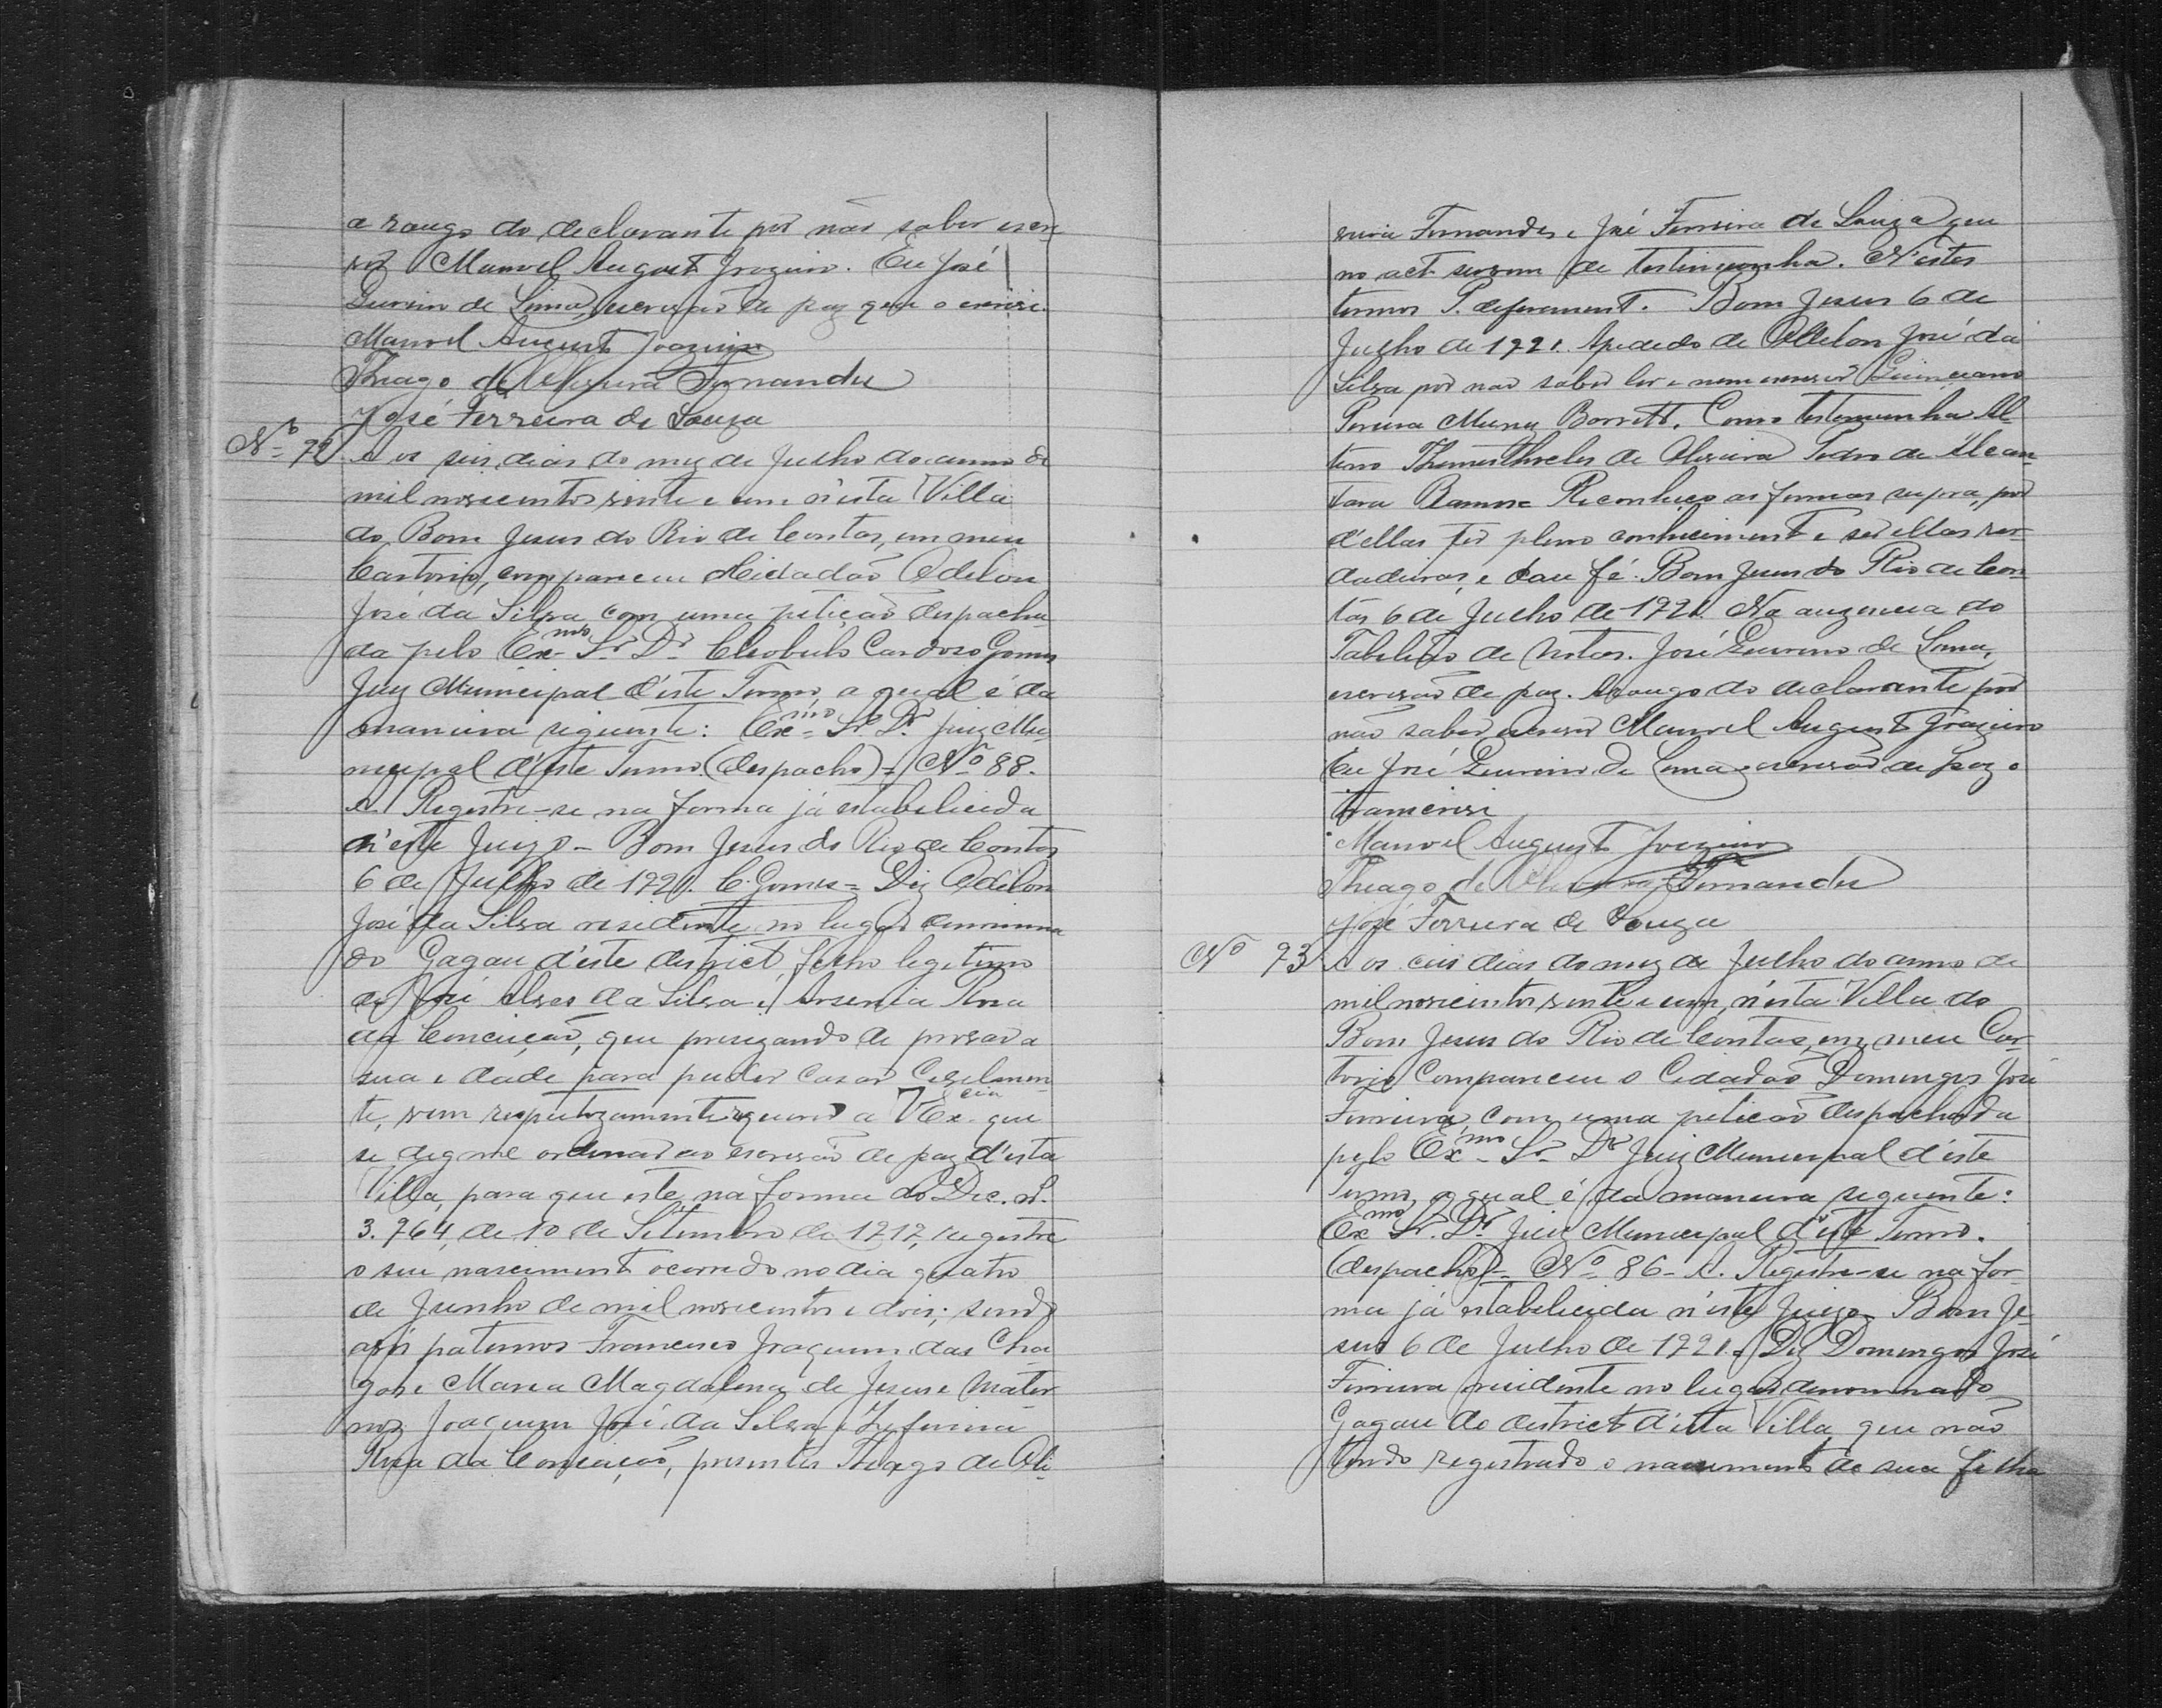 a rougo do declarante por não saber escre
ver Manoel August Joazeiro. Eu José
Loureiro de Lima, escrivão de paz que o escrivi.
Manoel August Joazeiro
Thiago de Oliveira Fernandes
José Ferreira de Souza
Nº 72 Aos seis dias do mez de Julho do anno de
mil novecentos vinte e um n'esta Villa
do Bom Jesus do Rio de Contas, em meu
Cartorio, compareceu o Cidadão Odilon
José da Silva com uma petição despacha
da pelo Exmo Sr Dr Cleobulo Cardoso Gomes
Juiz Municipal d'este Termo, a qual é da
maneira siguinte: Exmo Sr. Dr. Juiz Mu-
nicipal d'este Termo (despacho) = Nº 88.
A. Registre-se na forma já estabelicida
n'este Juizo - Bom Jesus do Rio de Contas
6 de Julho de 1921. C. Gomes = Diz Odilon
José da Silva residente no lugar dinomina
do Gagau d'este district, filho legitimo
de José Alves da Silva e Arsenia Rosa
da Conceição, que precizando de provar a
sua edade para puder casar Civilmen
te, vem respeitozamente requerer a V Excia que
se digne ordenar ao escrivão de paz d'esta
Villa, para que este, na forma do Dec. nº
3.764, de 10 de Setembro de 1917, registre
o seu nasciment ocorrido no dia quatro
de Junho de mil novecentos e dois; sendo
avós paternos Francisco Joaquim das Cha
gas e Maria Magdalena de Jesus e mater
nos Joaquim José da Silva e Zeferina
Rosa da Conceição, presentes Thiago de Oli-
veira Fernandes e José Ferreira de Souza que
no act servem de testimunha. N'estes
termos P. deferiment. Bom Jesus 6 de
Julho de 1921. Apedido de Odilon José da
Silva por não saber ler e nem escrever
Pereira Barrett. Como testemunha Al
tino de Oliveira Pedro de Alcan
tara Ramos = Reconheço as firmas supra, por
d'ellas ter pleno conheciment e ser ellas ver
dadeiras, e dou fé. Bom Jesus do Rio de Con
tas 6 de Julho de 1921. Na auzencia do
Tabelião de Notas. José Loureiro de Lima,
escrivão de paz. Arougo do declarante por
não saber escrever Manoel August Joazeiro
Eu José Loureiro de Lima escrivão de paz o
transcrivi
Manoel August Joazeiro
Thiago de Oliveira Fernandes
José Ferreira de Souza
Nº 73 Aos ceis dias do mez de Julho do anno de
mil novecentos vinte e um, n'esta Villa do
Bom Jesus do Rio de Contas, em meu Car-
torio Compareceu o Cidadão Domingos José
Ferreira, com uma petição despachada
pelo Exmo Sr Dr Juiz Municipal d'este
Termo, a qual é da maneira seguinte:
Exmo Sr. Dr Juiz Municipal d'este Termo.
(despacho) = Nº 86 - A. Registre-se na for-
ma já estabelicida n'este Juizo - Bom Je-
sus 6 de Julho de 1921. Diz Domingos José
Ferreira residente no lugar denominado
Gagau do district d'esta Villa, que não
tendo registrado o nasciment de sua filha